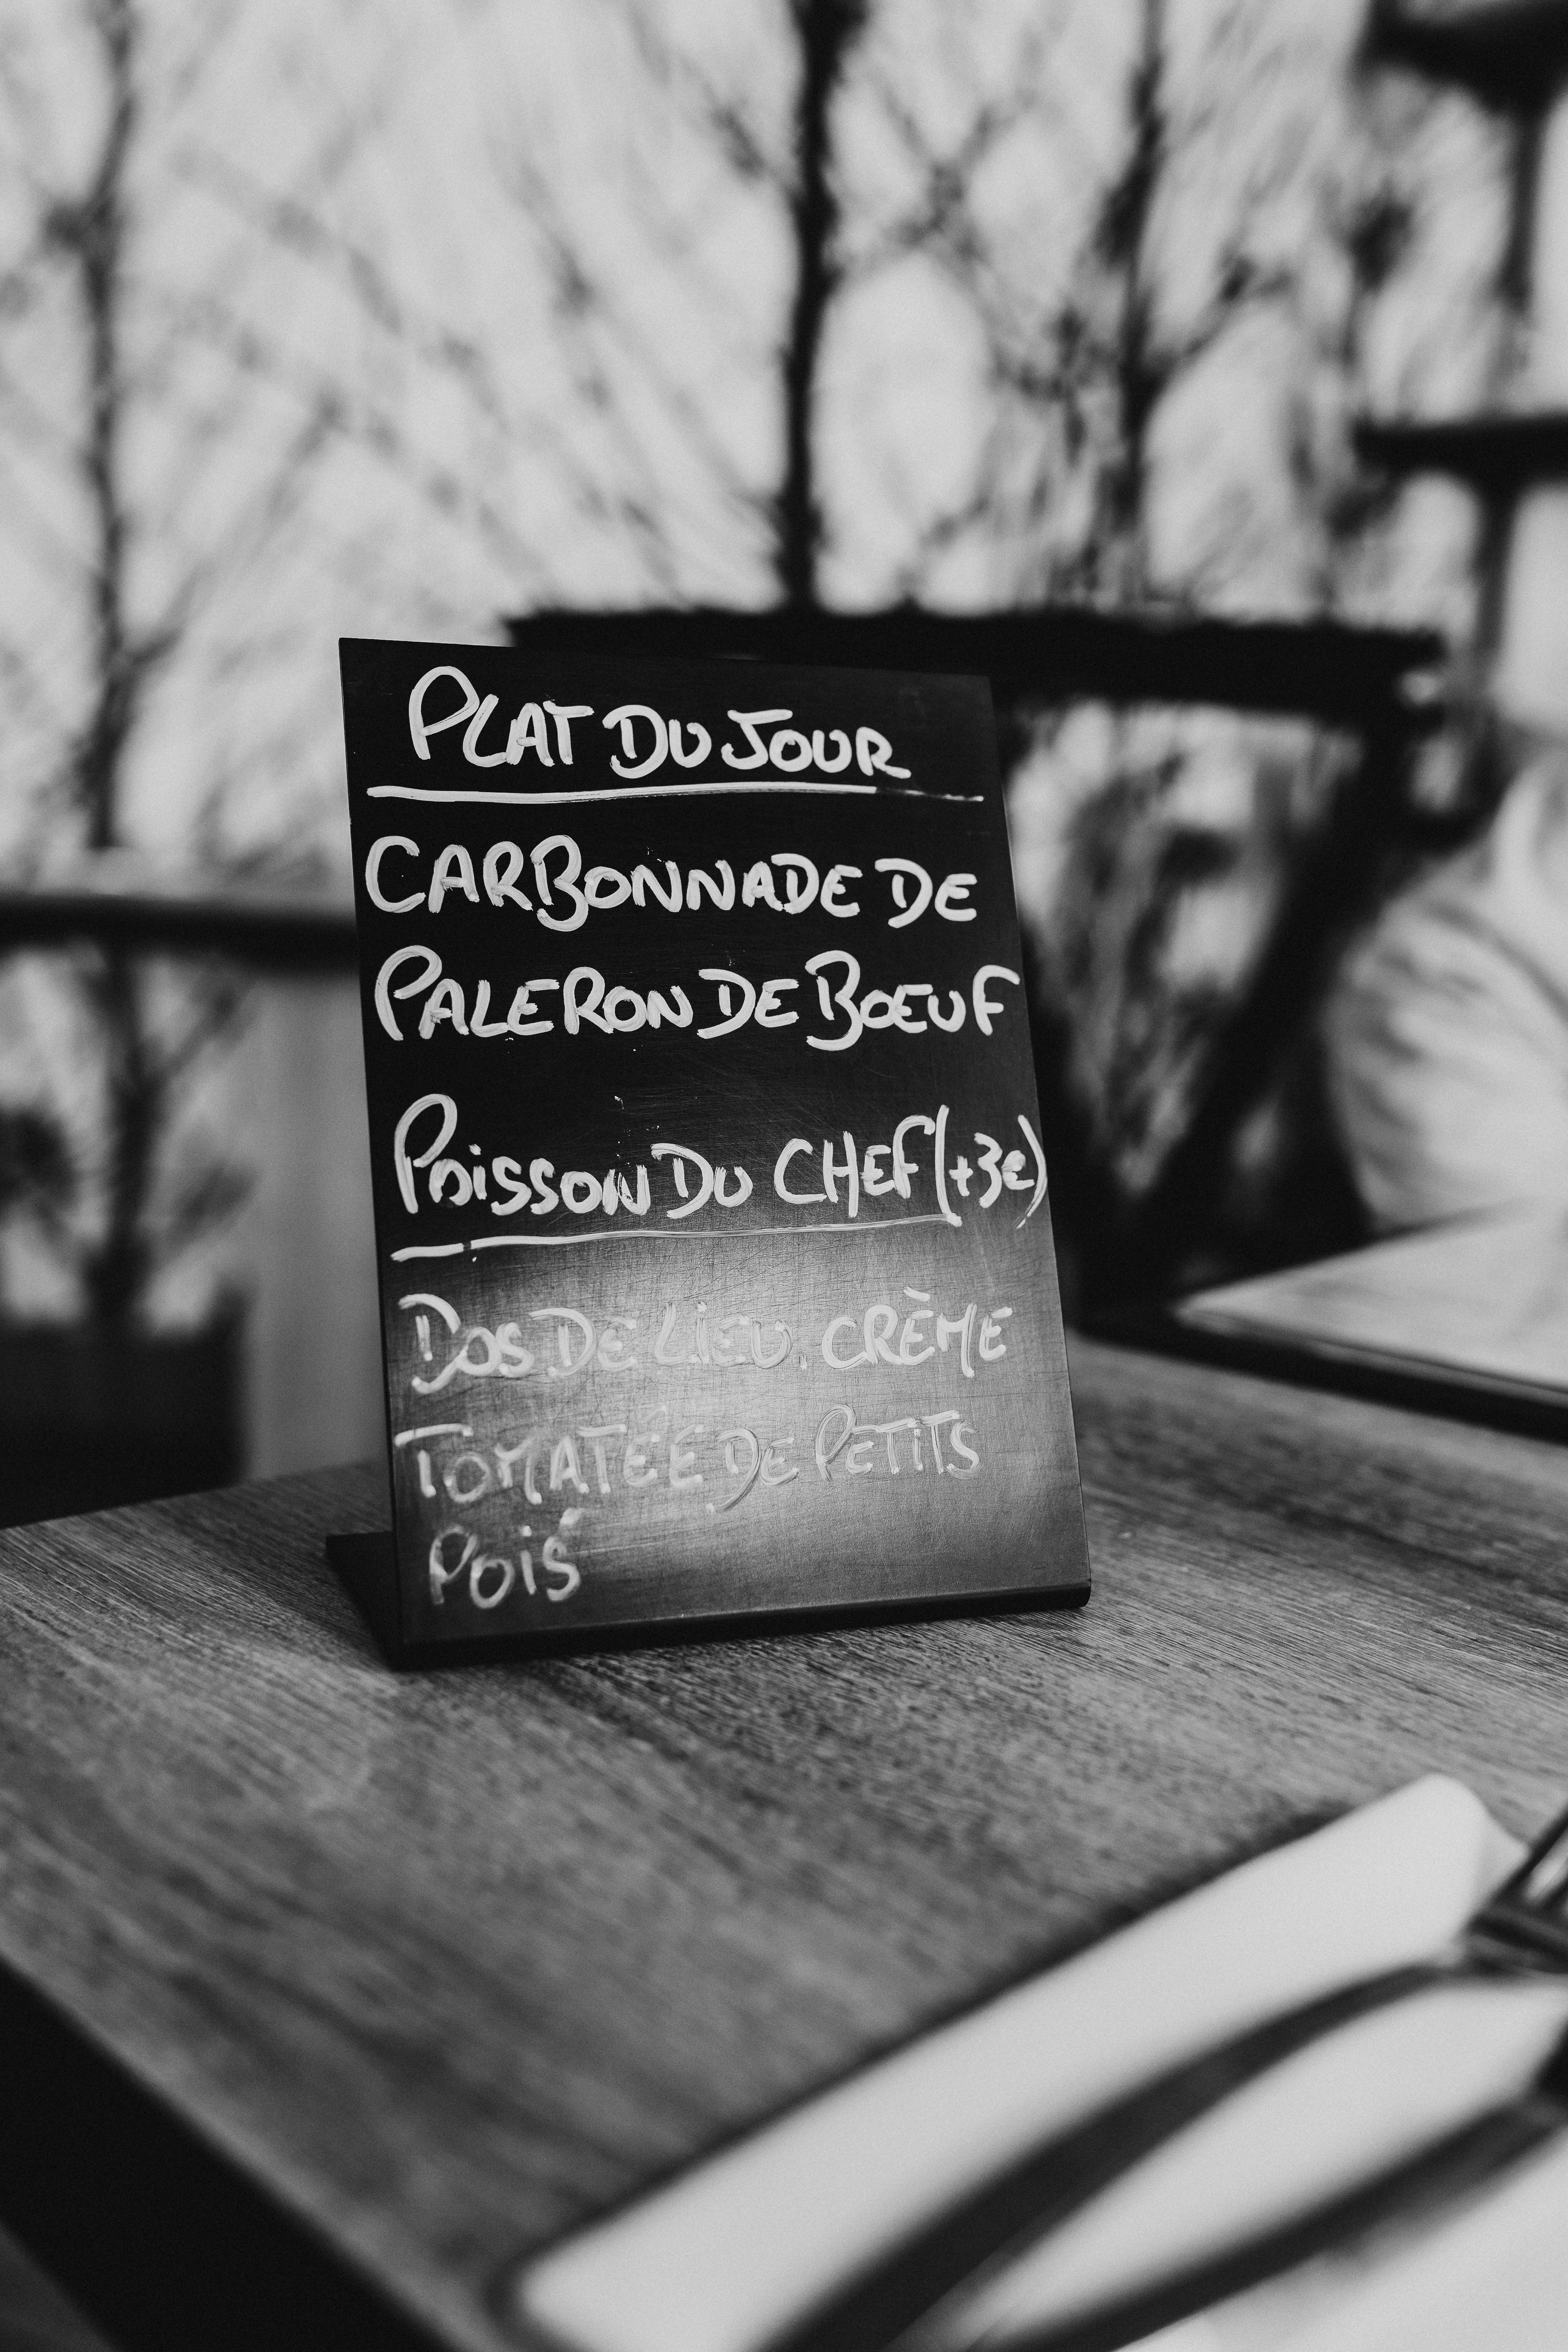 PLAT DU JOUR
CARBONNADE DE
PALERON DE BOEUF
POISSON DU CHEF (+3€)
DOS DE LIEU, CRÈME
TOMATÉE DE PETITS
POIS